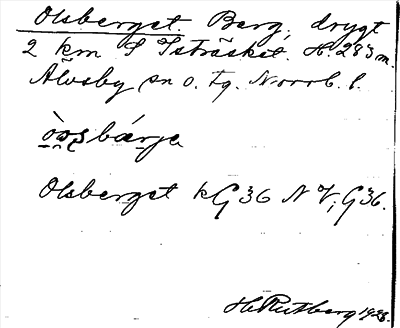 Olsberget. Berg, drygt
2 km S Isträsket. H. 283 m.
Älvsby sn o. tg. Norrb. l.
Olsberget kG36 NV; G36.
H. Rutberg 1928.